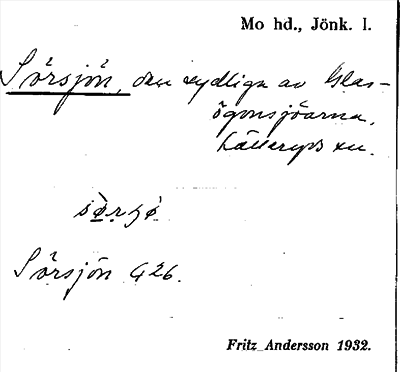 Mo hd., Jönk. l.
Sörsjön, den sydliga av Glas-
ögonsjöarna,
Källeryds sn.
sø̀rʃø̀
Sörsjön G26.
Fritz Andersson 1932.